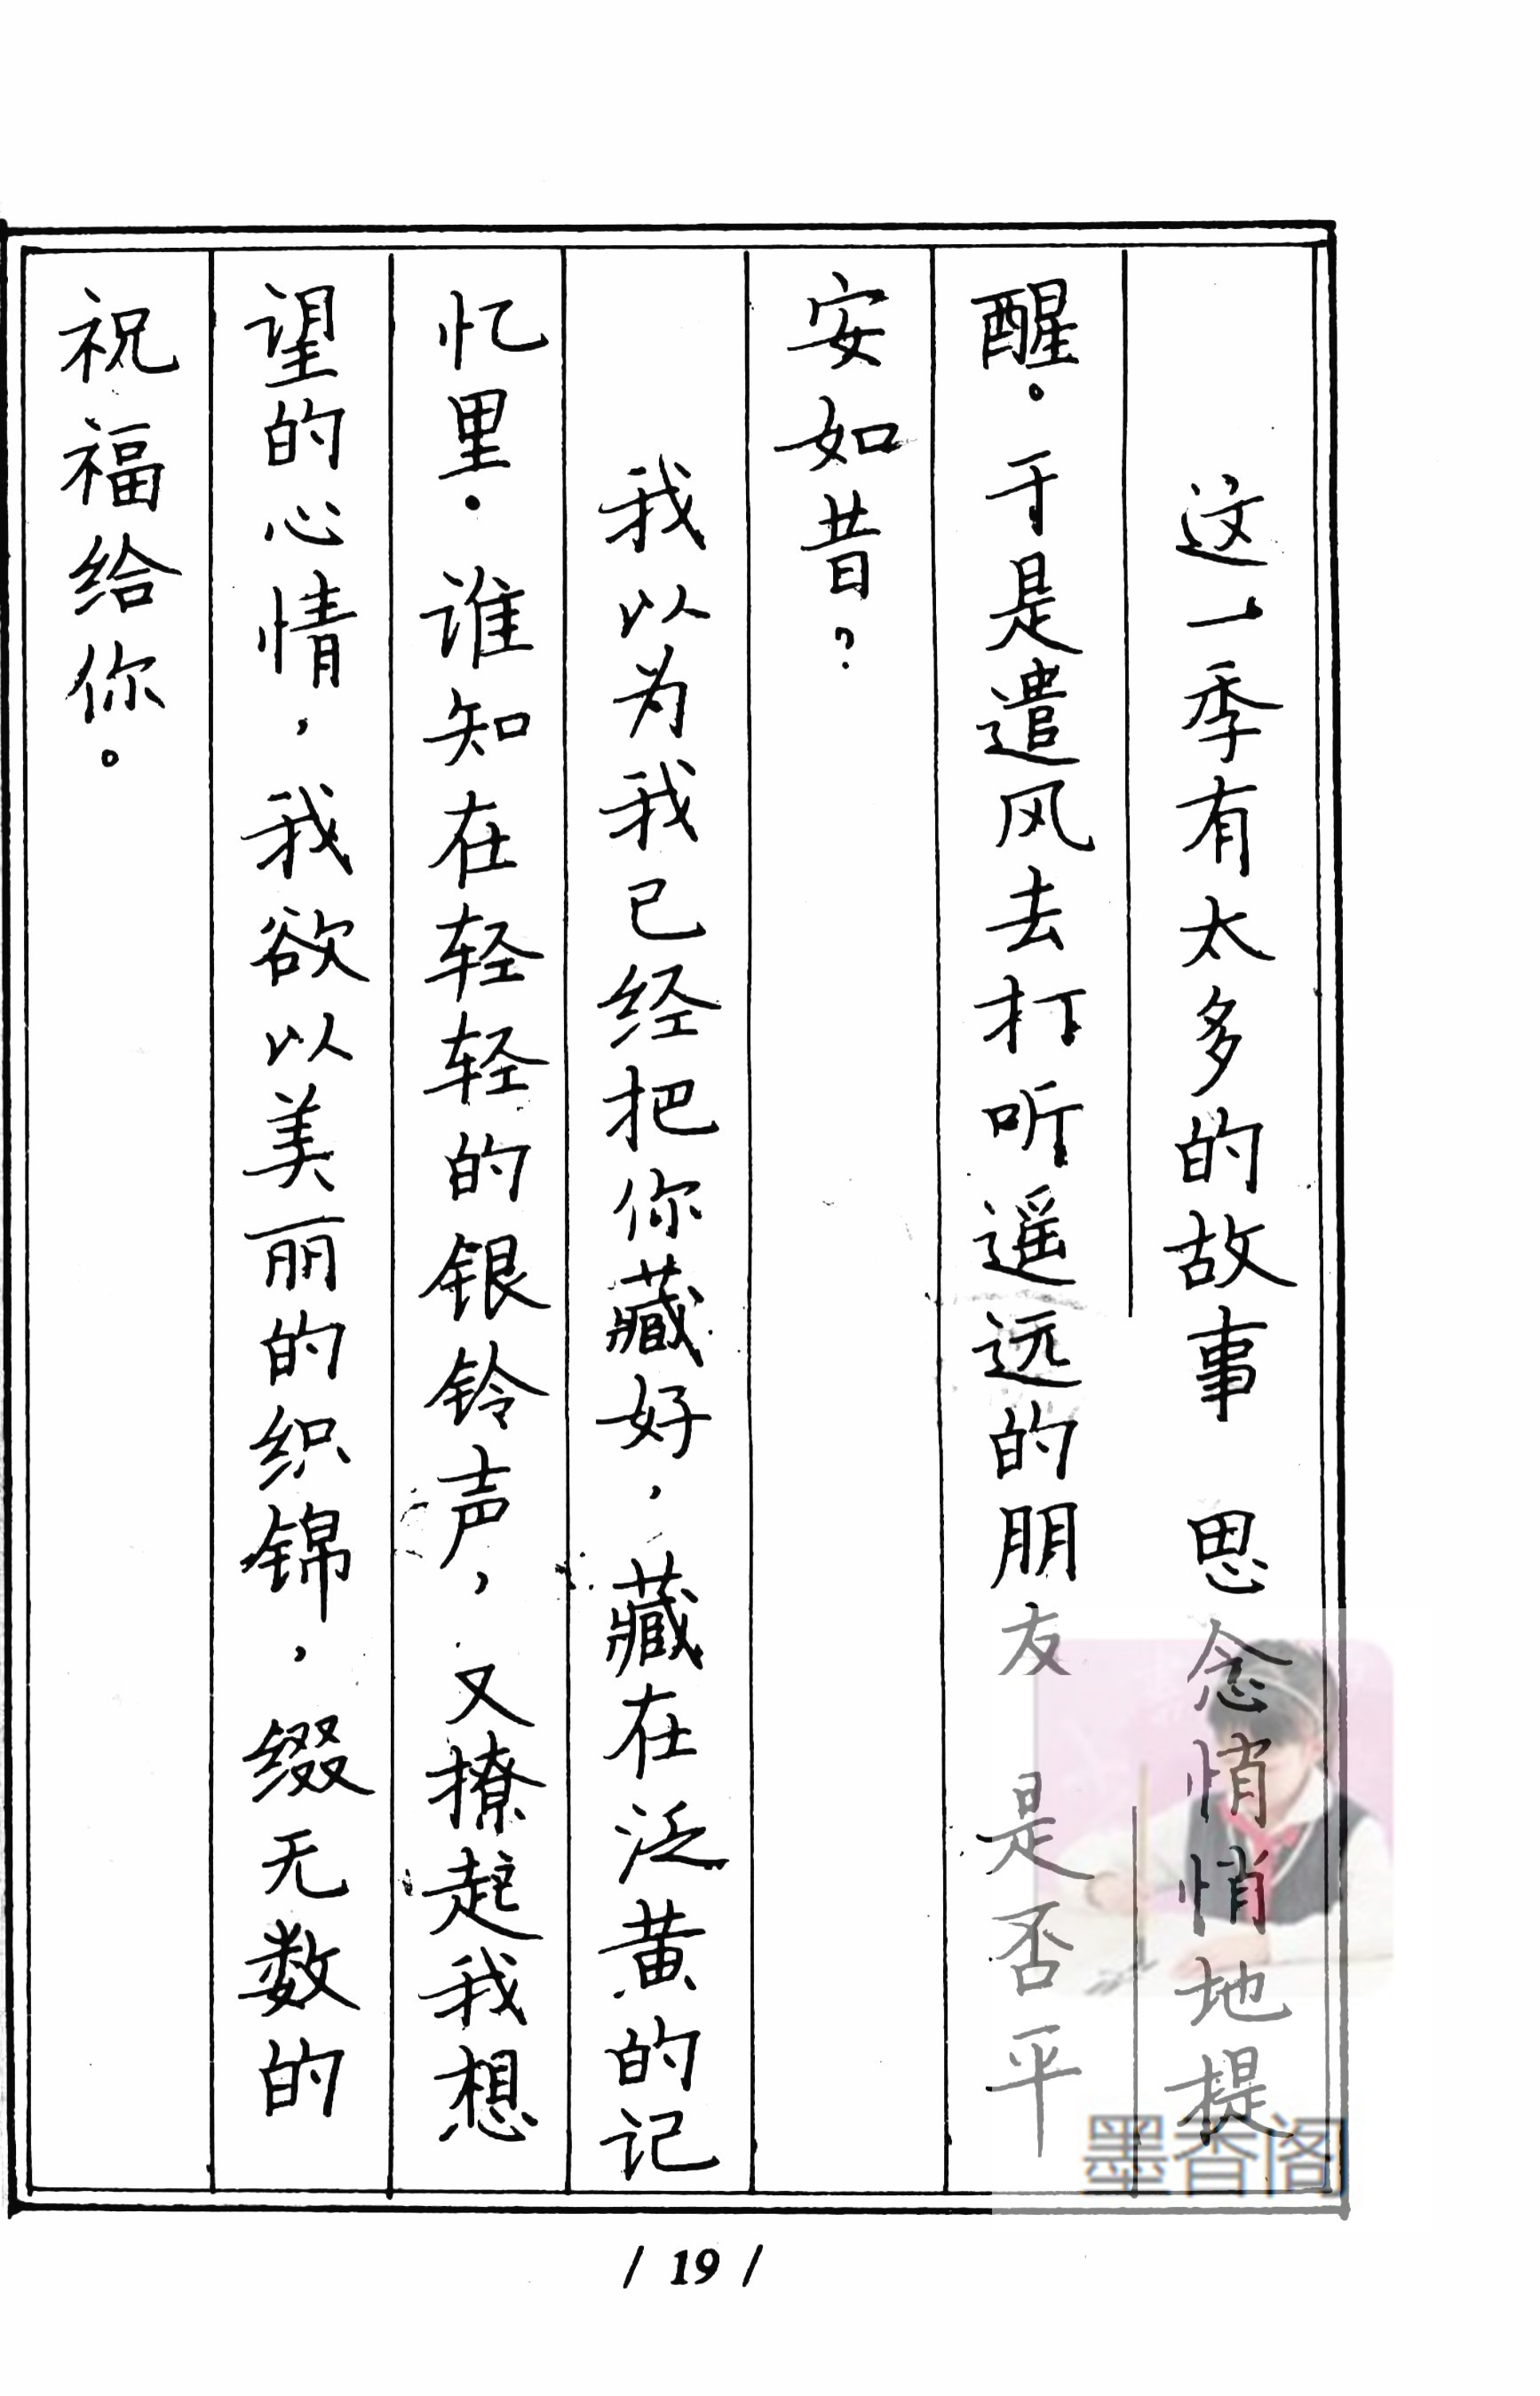 这一季有太多的故事 思念悄悄地提
醒。于是遣风去打听遥远的朋友 是否平
安如昔？
我以为我已经把你藏好，藏在泛黄的记
忆里.谁知在轻轻的银铃声，又撩起我想
望的心情，我欲以美丽的织锦，缀无数的
祝福给你。
墨香阁
/ 19 /